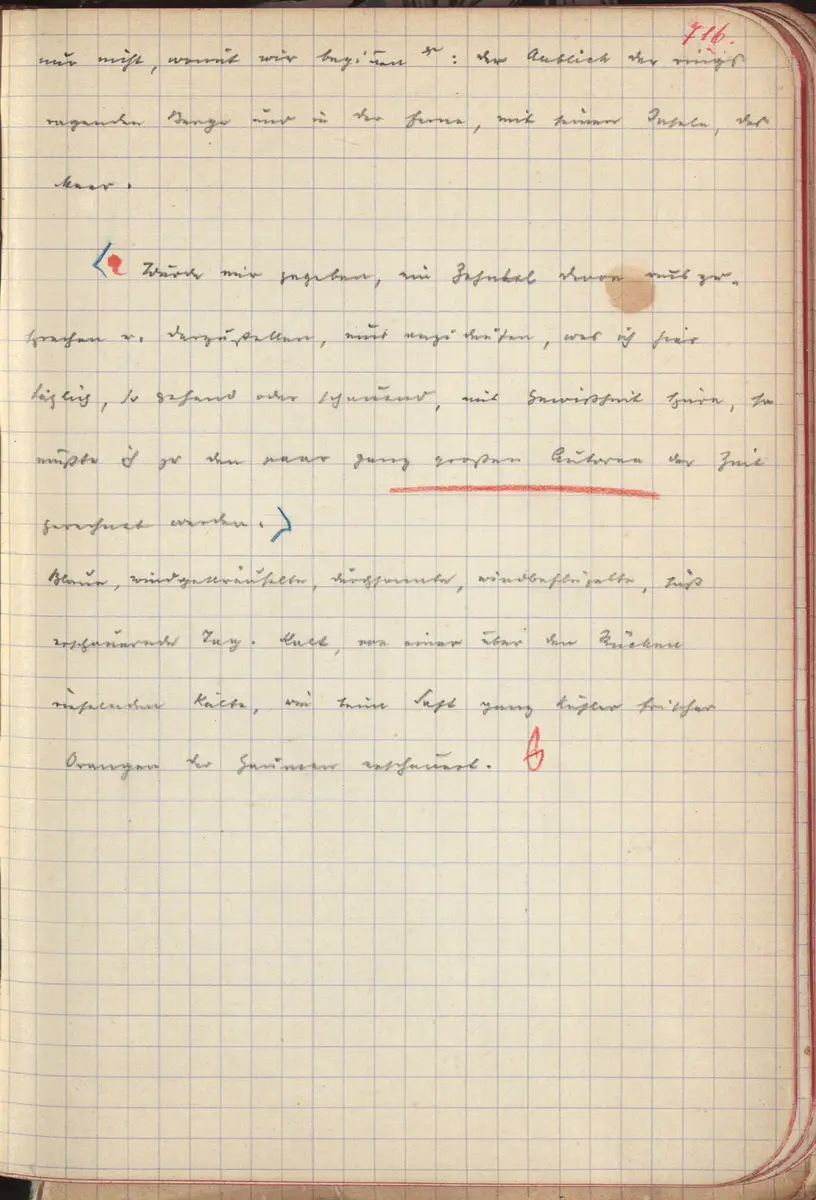 716.
nur nicht, womit wir beginnen : der Anblick der rings
ragenden Berge und in der Ferne, mit seinen Inseln, das
Meer.
Würde mir gegeben, ein Zehntel davon auszu-
sprechen u. darzustellen, nur anzudeuten, was ich hier
täglich, so gehend oder schauend, mit Gewißheit spüre, so
müßte ich zu den paar ganz großen Autoren der Zeit
gerechnet werden.
Blaue, windgekräuselte, durchsonnte, windbeflügelte, süß
erschauernde Tag. Kalt, von einer über den Rücken
rieselnden Kälte, wie beim Saft ganz kühler frischer
Orangen der Gaumen erschauert.